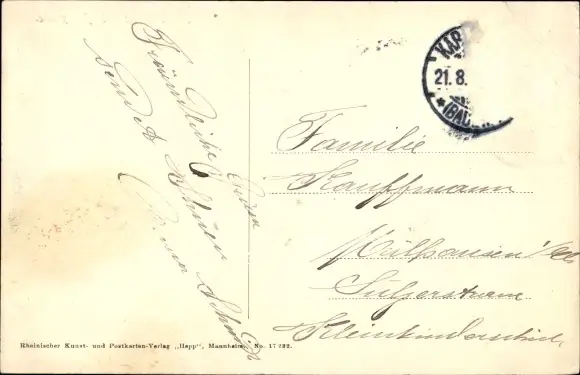 Freundliche Grüße
sendet Ihnen
KAR
21.8.
(BAD
Familie
Kauffmann
Mülhausen i/Els
Sulzerstrasse
Kleinkinderschule
Rheinischer Kunst- und Postkarten-Verlag „Happ", Mannheim. No. 17222.